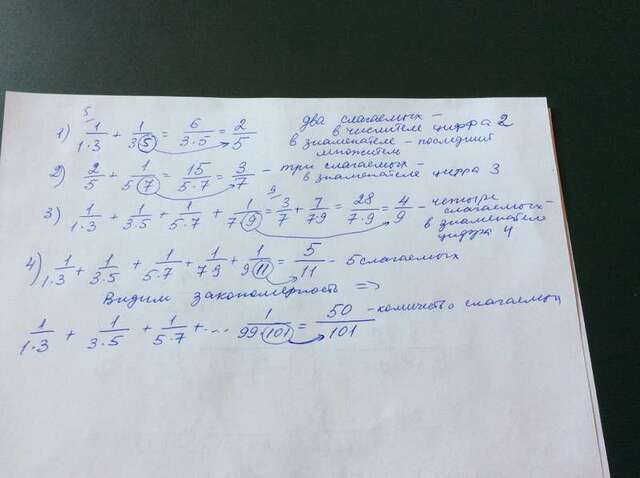 1) 1/1·3 + 1/3·5 = 6/3·5 = 2/5 два слагаемых - в числителе цифра 2
в знаменателе - последний множитель
2) 2/5 + 1/5·7 = 15/5·7 = 3/7 - три слагаемых - в знаменателе цифра 3
3) 1/1·3 + 1/3·5 + 1/5·7 + 1/7·9 = 3/7 + 1/7·9 = 28/7·9 = 4/9 - четыре слагаемых - в знаменателе цифра 4
4) 1/1·3 + 1/3·5 + 1/5·7 + 1/7·9 + 1/9·11 = 5/11 - 5 слагаемых
Видим закономерность =>
1/1·3 + 1/3·5 + 1/5·7 + ... 1/99·101 = 50/101 - количество слагаемых